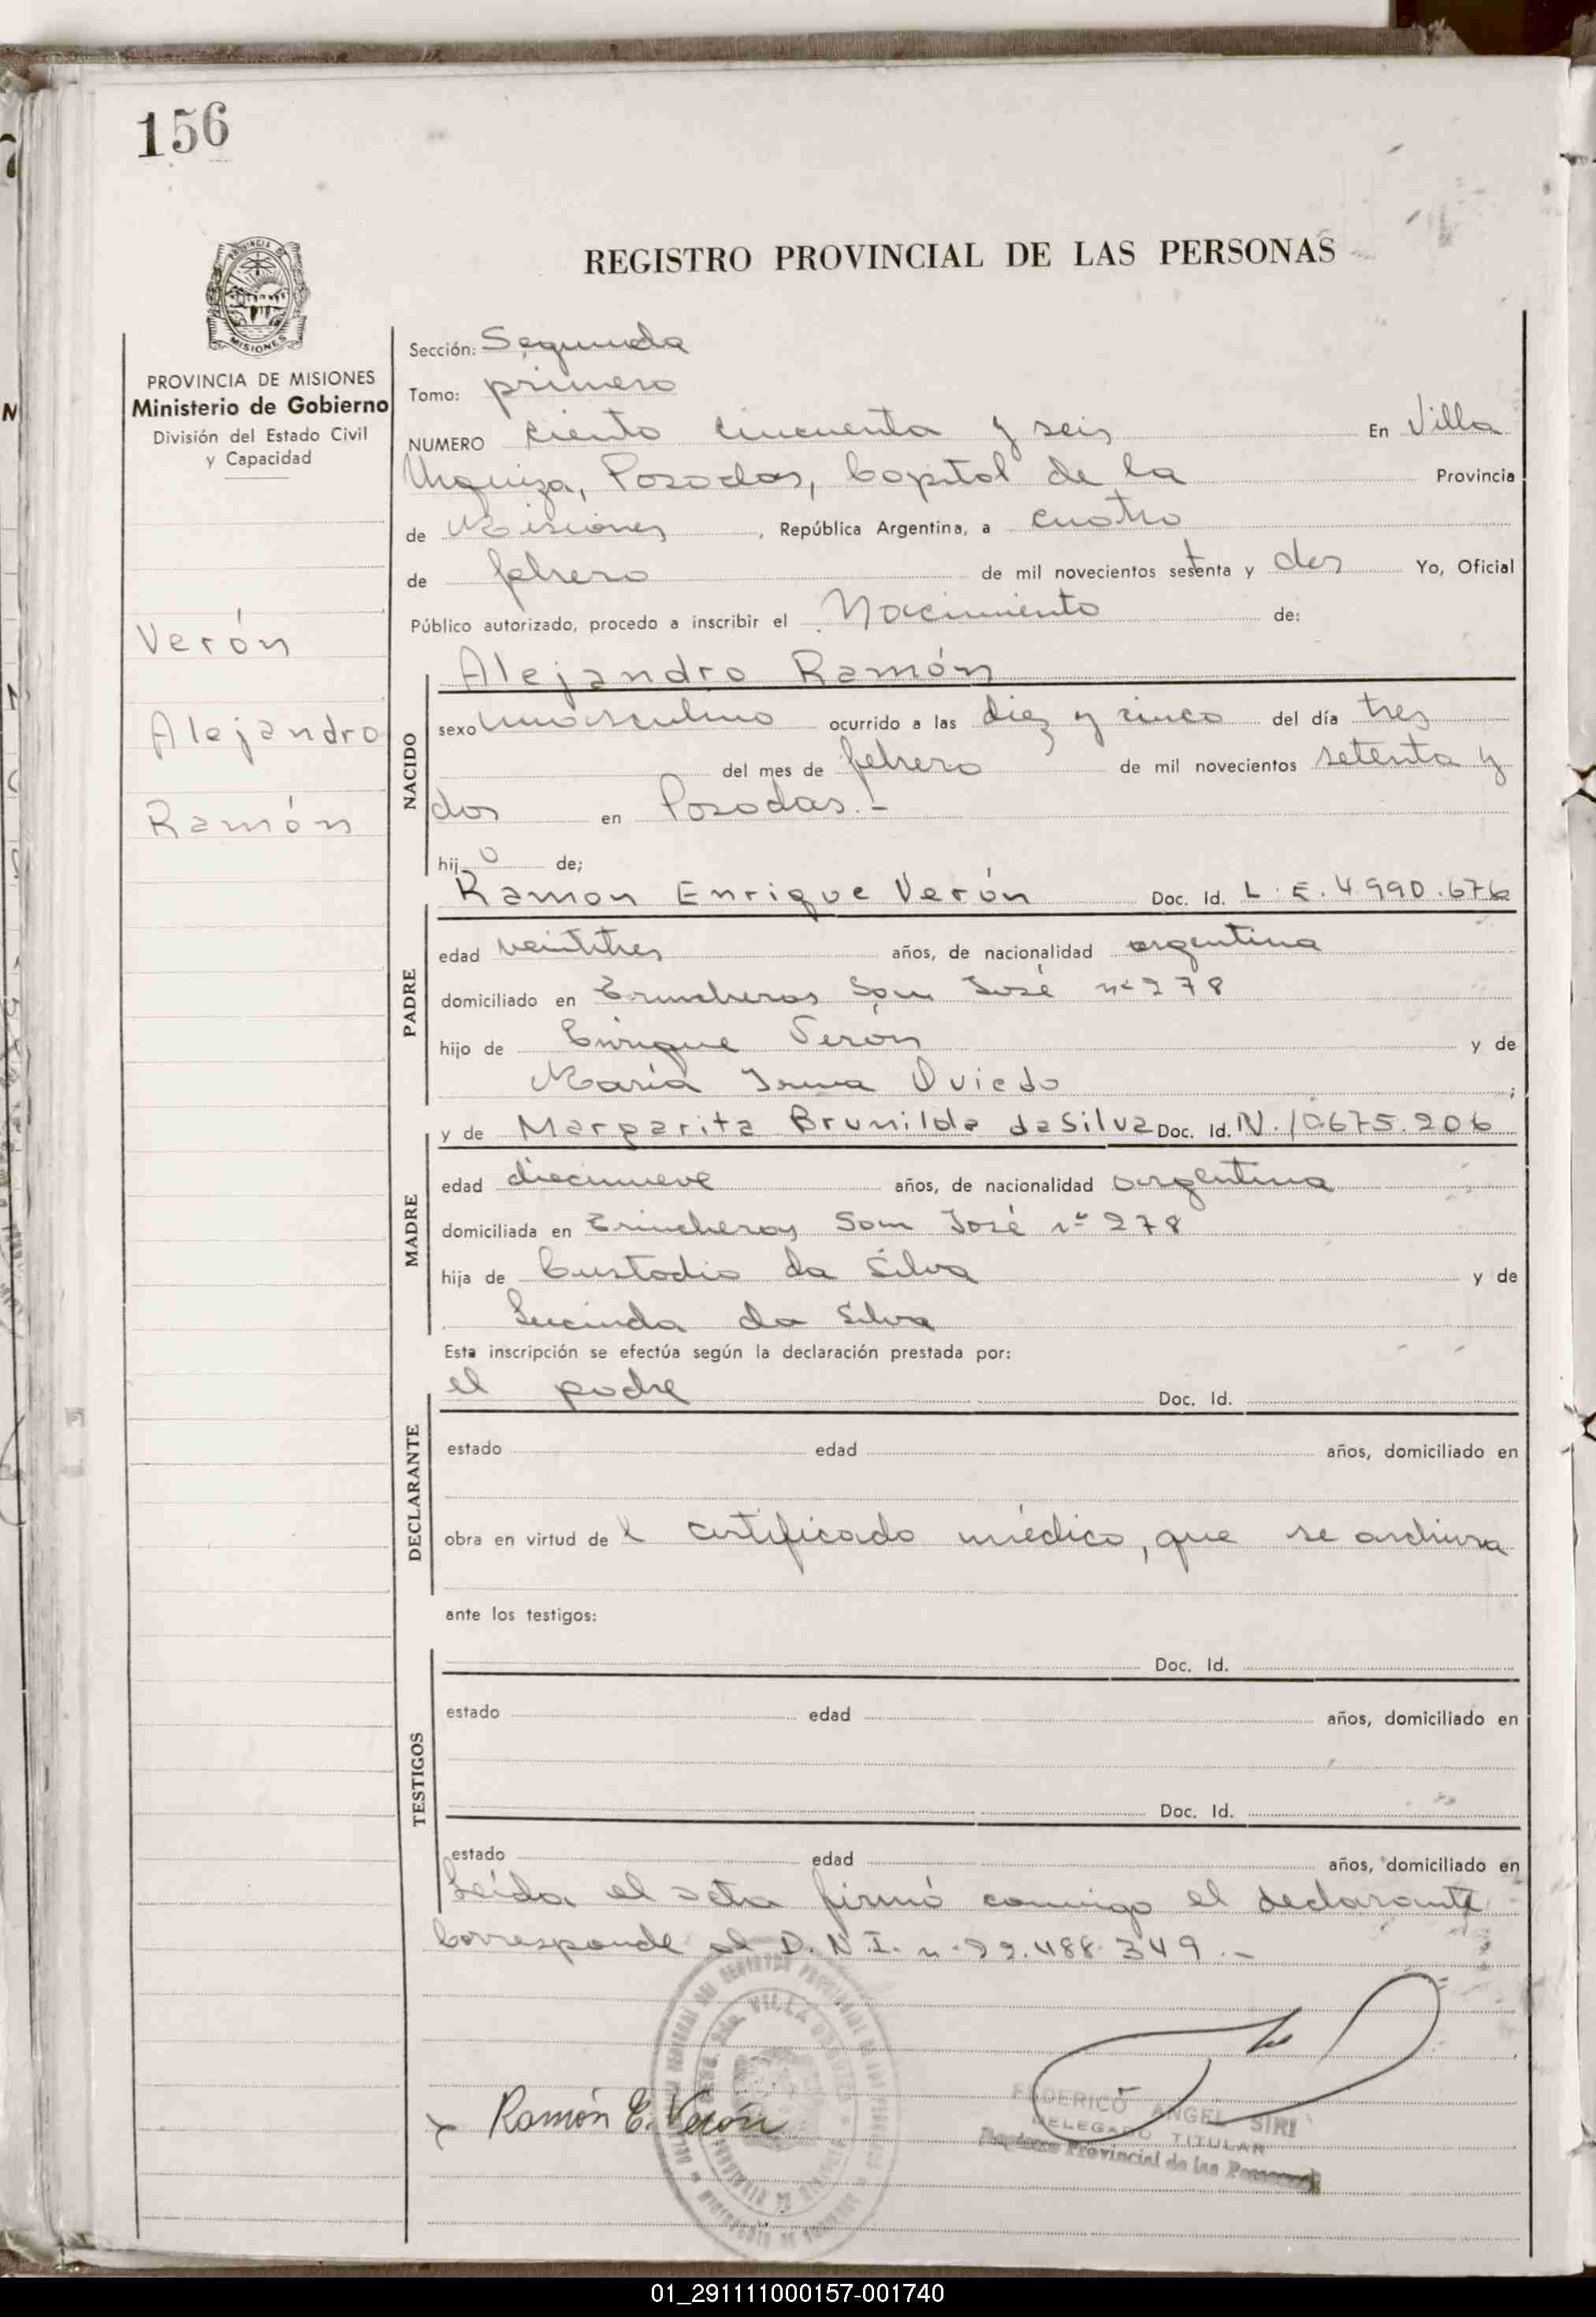 156
REGISTRO PROVINCIAL DE LAS PERSONAS
PROVINCIA DE MISIONES
Ministerio de Gobierno
División del Estado Civil
y Capacidad
Verón
Alejandro
Ramón
Sección: Segunda
Tomo: primero
NUMERO ciento cincuenta y seis En Villa
Urquiza, Posadas, Capital de la Provincia
de Misiones, República Argentina, a cuatro
de febrero de mil novecientos setenta y dos Yo, Oficial
Público autorizado, procedo a inscribir el Nacimiento de:
NACIDO
Alejandro Ramón
sexo masculino ocurrido a las diez y cinco del día tres
del mes de febrero de mil novecientos setenta y
dos en Posadas.-
hijo de;
PADRE
Ramon Enrique Verón Doc. Id. L.E. 4.990.676
edad veintitres años, de nacionalidad argentina
domiciliado en Trincheras San José nº 278
hijo de Enrique Verón y de
María Irma Oviedo;
MADRE
y de Margarita Brunilda da Silva Doc. Id. N. 10.675.206
edad diecinueve años, de nacionalidad argentina
domiciliada en Trincheras San José nº 278
hija de Custodio da Silva y de
Lucinda da Silva
Esta inscripción se efectúa según la declaración prestada por:
DECLARANTE
el padre Doc. Id.
estado edad años, domiciliado en
obra en virtud del certificado médico, que se archiva
ante los testigos:
TESTIGOS
Doc. Id.
estado edad años, domiciliado en
Doc. Id.
estado edad años, domiciliado en
Leída el acta firmó conmigo el declarante
Corresponde al D.N.I. nº 22.488.349.-
Ramón E. Verón
FEDERICO ANGEL SIRI
DELEGADO TITULAR
Registro Provincial de las Personas
01_291111000157-001740